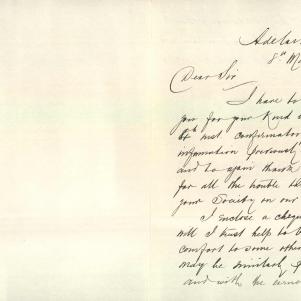 Adelai
8th M
Dear Sir
I have to
you for your kind
4th inst confirmator
information previously
and to again thank
for all the trouble
your Society on our
I enclose a cheq
will I trust help to
comfort to some othe
may be similarly
and with the